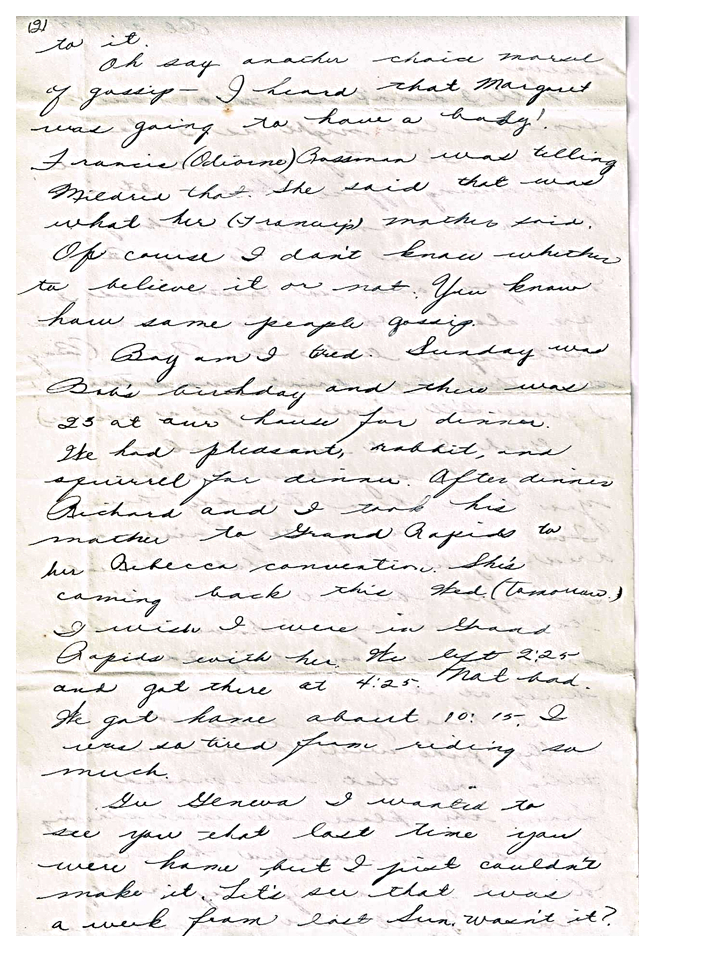 (2)
to it.
Oh say another choice morsel
of gossip — I heard that Margaret
was going to have a baby!
Francis (Odiorne) Bossman was telling
Mildred that. She said that was
what her (Francis) mother said.
Of course I don't know whether
to believe it or not. You know
how some people gossip.
Boy am I tired. Sunday was
Bob's birthday and there was
25 at our house for dinner.
We had pheasant, rabbit, and
squirrel for dinner. After dinner
Richard and I took his
mother to Grand Rapids to
her Rebecca convention. She's
coming back this Wed. (tomorrow.)
I wish I were in Grand
Rapids with her. We left 2:25
and got there at 4:25. Not bad.
We got home about 10:15. I
was so tired from riding so
much.
Geneva I wanted to
see you that last time you
were home but I just couldn't
make it. Let's see that was
a week from last Sun. wasn't it?